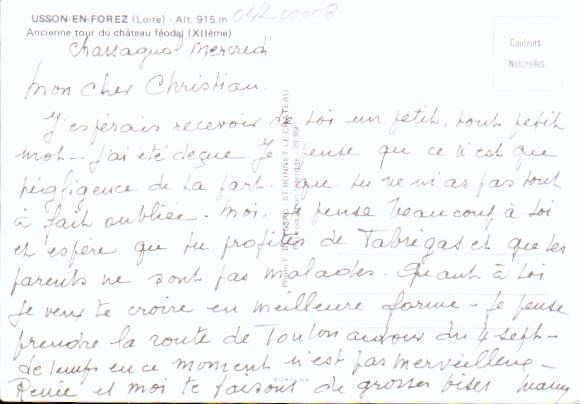 USSON-EN-FOREZ (Loire) - Alt. 915 m
042 00008
Ancienne tour du château féodal (XIIème)
Couleurs
Naturelles
Chassagnol Mercredi
Mon cher Christian.
J'espérais recevoir de toi un petit, tout petit
mot - j'ai été déçue Je pense que ce n'est que
négligence de ta part. que tu ne m'as pas tout
à fait oubliée. Moi, je pense beaucoup à toi
et espère que tu profites de Tabrégas et que tes
parents ne sont pas malades. Quant à toi
Je veux te croire en meilleure forme - Je pense
prendre la route de Toulon autour du 4 sept -
de temps en ce moment n'est pas merveilleux -
Renée et moi te faisons de grosses bises Mamy
ST BONNET LE CHATEAU